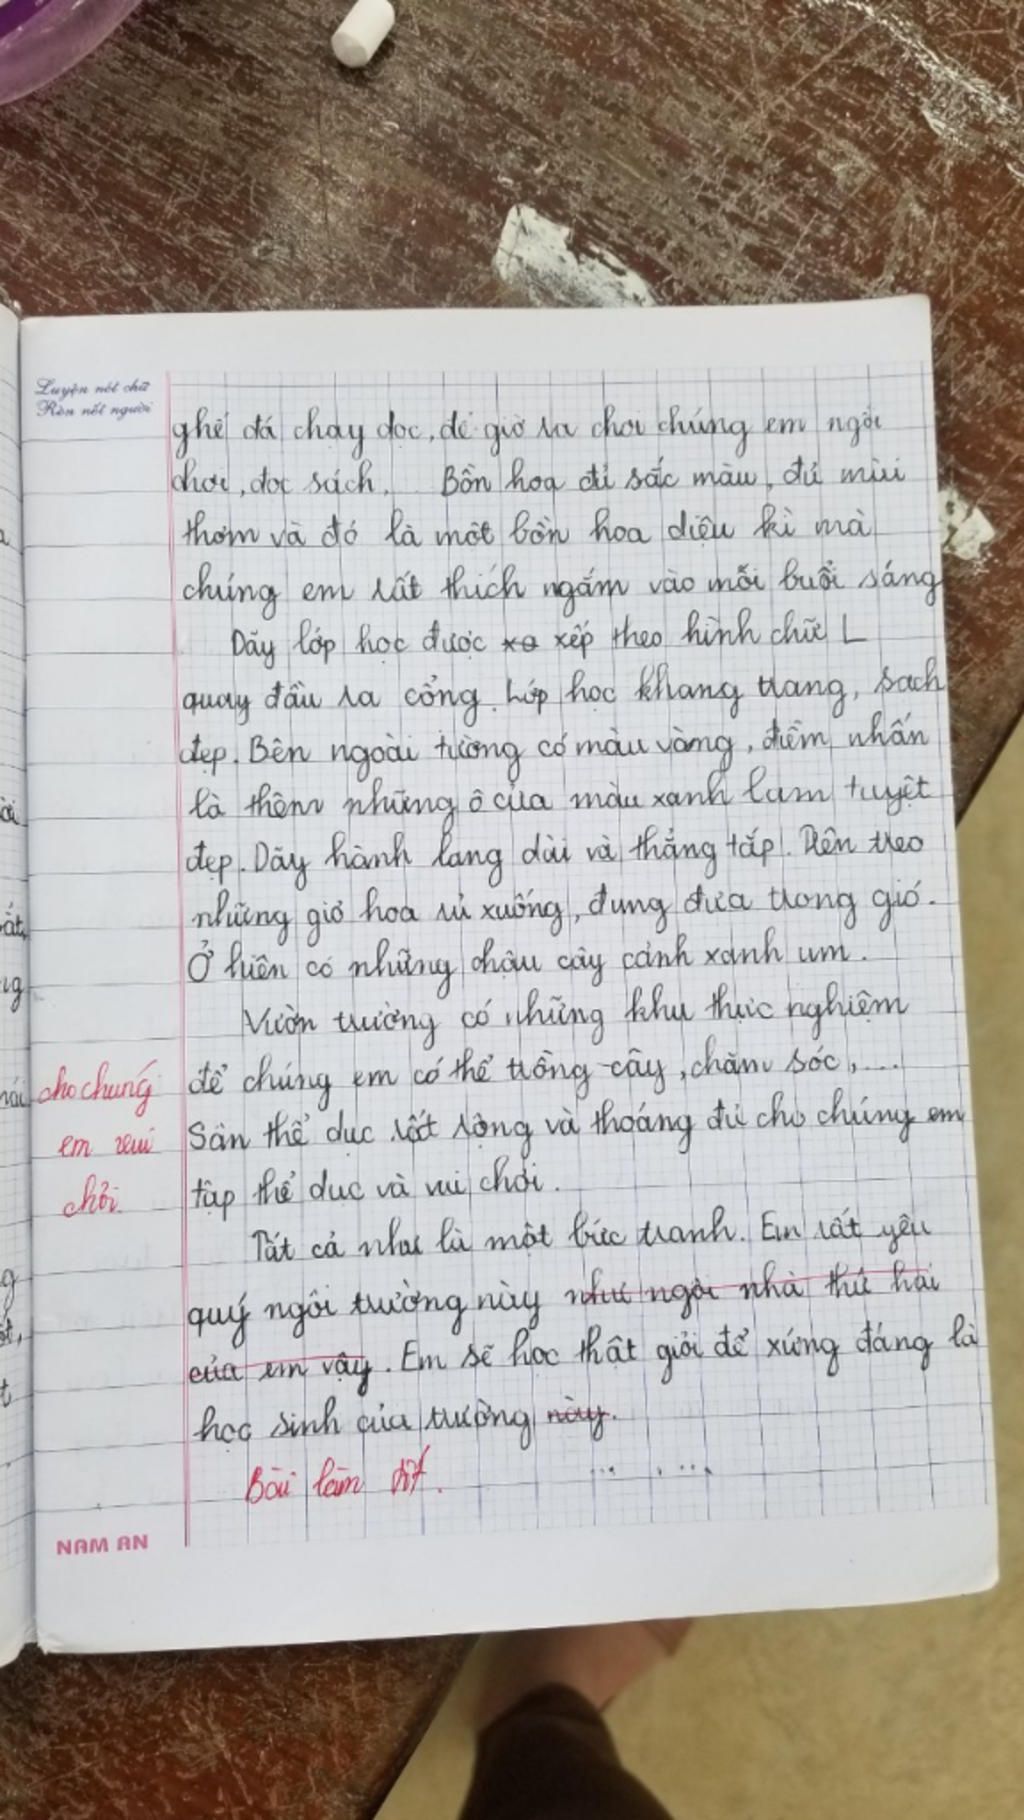 Luyện nét chữ
Rèn nết người
ghế đá chạy dọc, để giờ ra chơi chúng em ngồi
chơi, đọc sách. Bồn hoa đủ sắc màu, đủ mùi
thơm và đó là một bồn hoa diệu kì mà
chúng em rất thích ngắm vào mỗi buổi sáng
Dãy lớp học được xa xếp theo hình chữ L
quay đầu ra cổng. Lớp học khang trang, sạch
đẹp. Bên ngoài tường có màu vàng, điểm nhấn
là thêm những ô cửa màu xanh lam tuyệt
đẹp. Dãy hành lang dài và thẳng tắp. Trên treo
những giỏ hoa rủ xuống, đung đưa trong gió.
Ở hiên có những chậu cây cảnh xanh um.
Vườn trường có những khu thực nghiệm
để chúng em có thể trồng cây, chăm sóc,....
Sân thể dục rất rộng và thoáng đủ cho chúng em
tập thể dục và vui chơi.
cho chúng
em vui
chơi
Tất cả như là một bức tranh. Em rất yêu
quý ngôi trường này như ngôi nhà thứ hai
của em vậy. Em sẽ học thật giỏi để xứng đáng là
học sinh của trường này.
Bài làm tốt.
NAM AN